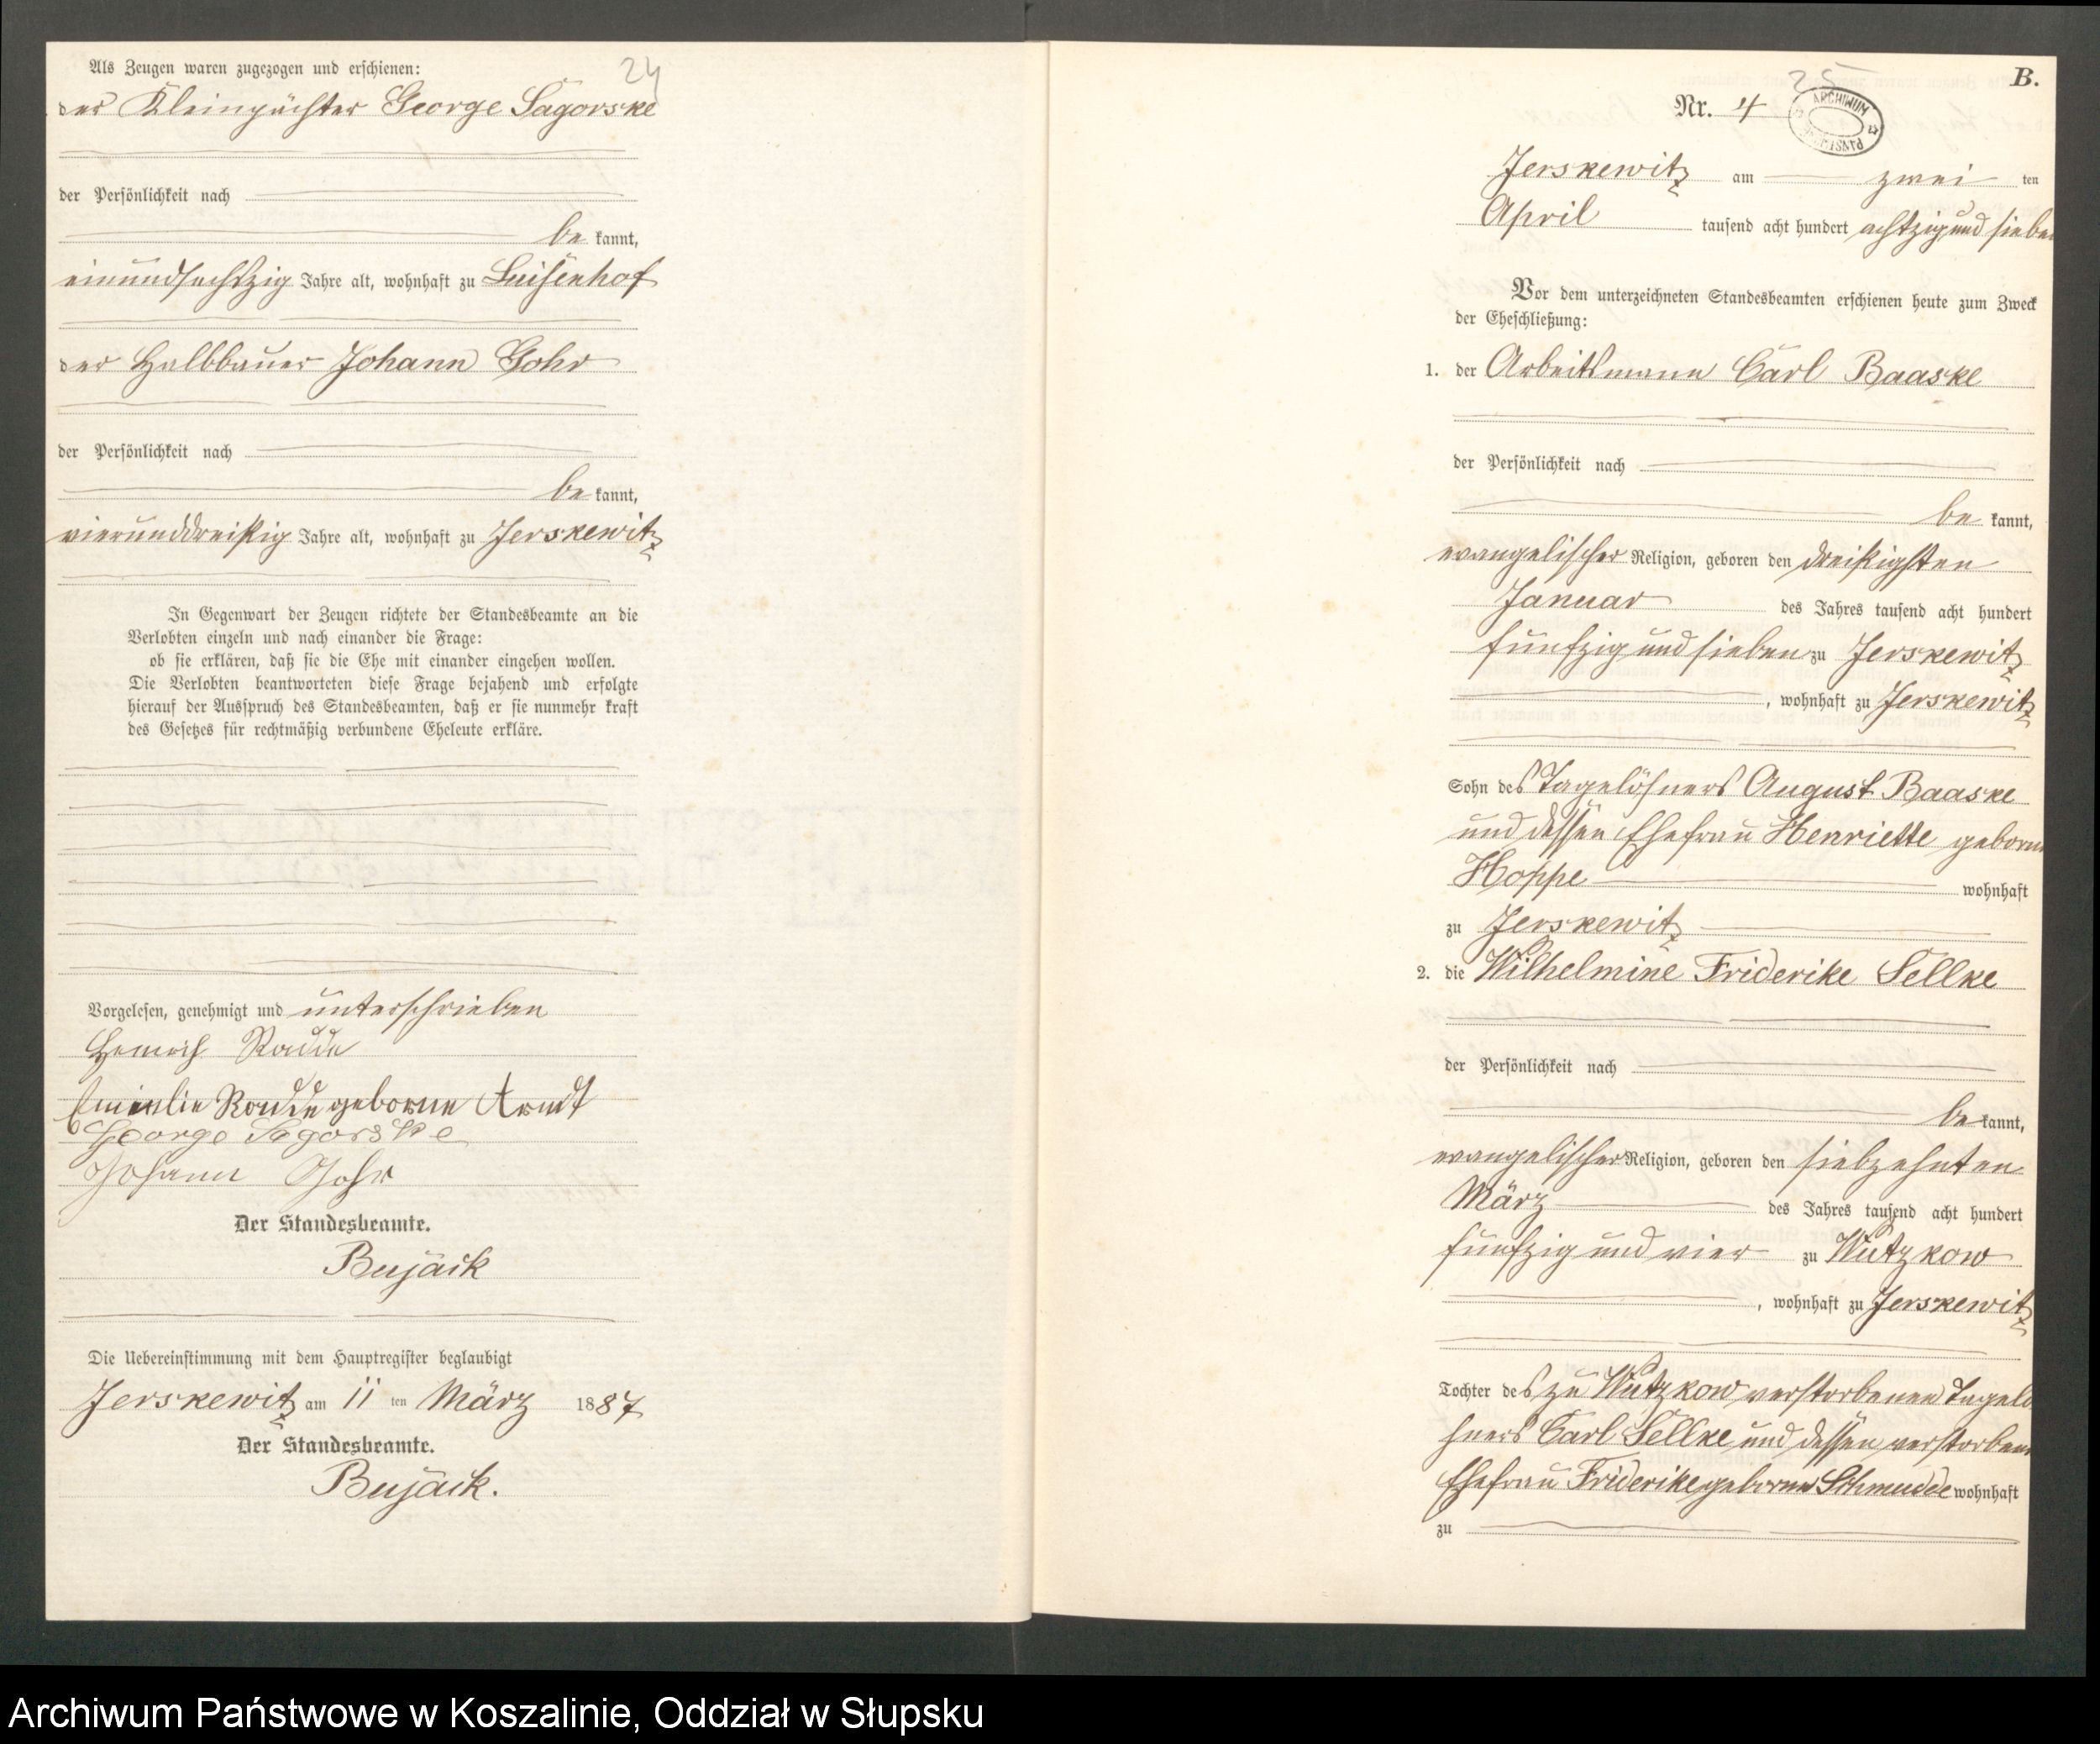 24
Als Zeugen waren zugezogen und erschienen:
der Kleinpächter George Sagorske
der Persönlichkeit nach
be kannt,
einundsechszig Jahre alt, wohnhaft zu Luisenhof
der Halbbauer Johann Gohr
der Persönlichkeit nach
be kannt,
vierunddreißig Jahre alt, wohnhaft zu Jerskewitz
In Gegenwart der Zeugen richtete der Standesbeamte an die
Verlobten einzeln und nach einander die Frage:
ob sie erklären, daß sie die Ehe mit einander eingehen wollen.
Die Verlobten beantworteten diese Frage bejahend und erfolgte
hierauf der Ausspruch des Standesbeamten, daß er sie nunmehr kraft
des Gesetzes für rechtmäßig verbundene Eheleute erkläre.
Vorgelesen, genehmigt und unterschrieben
Heinrich Radde
Radde geborne Arndt
George Sagorske
Johann Gohr
Der Standesbeamte.
Bujack
Die Uebereinstimmung mit dem Hauptregister beglaubigt
Jerskewitz am 11 ten März 1887
Der Standesbeamte.
Bujack.
25
B.
Nr. 4
ARCHIWUM
Jerskewitz am zwei ten
April tausend acht hundert achtzig und sieben
Vor dem unterzeichneten Standesbeamten erschienen heute zum Zweck
der Eheschließung:
1. der Arbeitsmann Carl Baaske
der Persönlichkeit nach
be kannt,
evangelischer Religion, geboren den dreißigsten
Januar des Jahres tausend acht hundert
fünfzig und sieben zu Jerskewitz
, wohnhaft zu Jerskewitz
Sohn des Tagelöhners August Baaske
und dessen Ehefrau Henriette geborne
Hoppe wohnhaft
zu Jerskewitz
2. die Wilhelmine Friderike Sellke
der Persönlichkeit nach
be kannt,
evangelischer Religion, geboren den siebzehnten
März des Jahres tausend acht hundert
fünfzig und vier zu Wutzkow
, wohnhaft zu Jerskewitz
Tochter des zu Wutzkow verstorbenen Tagelö
hners Carl Sellke und dessen verstorbene
Ehefrau Friderike geborne Schmudde wohnhaft
zu
Archiwum Państwowe w Koszalinie, Oddział w Słupsku